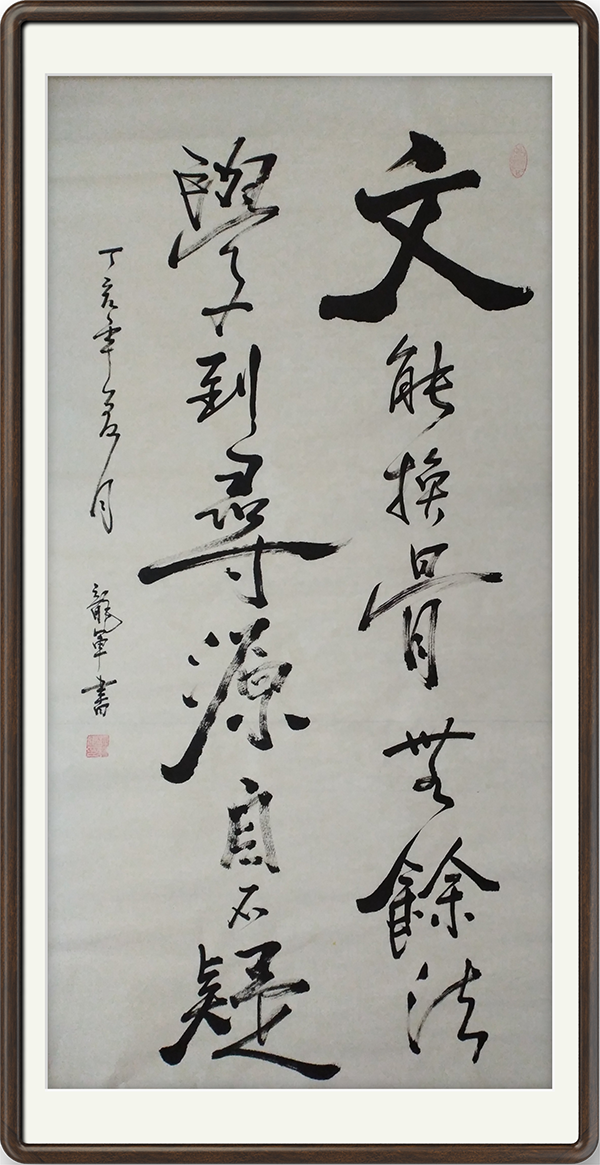 文能換骨無餘法
學到尋源自不疑
丁亥年夏月
龍軍書